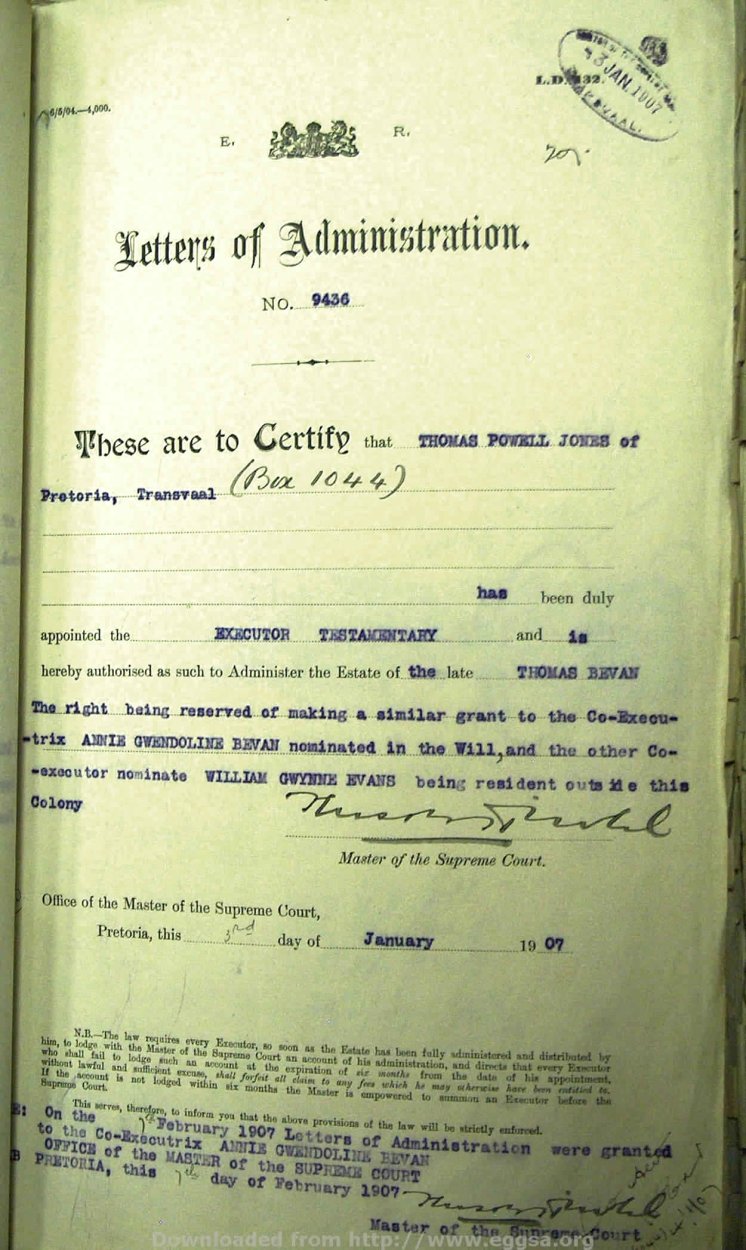 L.D. 132.
3 JAN. 1907
TRANSVAAL.
6/5/04.—4,000.
E. R.
Letters of Administration.
No. 9436
These are to Certify that THOMAS POWELL JONES of
Pretoria, Transvaal (Box 1044)
has been duly
appointed the EXECUTOR TESTAMENTARY and is
hereby authorised as such to Administer the Estate of the late THOMAS BEVAN
The right being reserved of making a similar grant to the Co-Execu-
-trix ANNIE GWENDOLINE BEVAN nominated in the Will, and the other Co-
-executor nominate WILLIAM GWYNNE EVANS being resident outside this
Colony
Master of the Supreme Court.
Office of the Master of the Supreme Court,
Pretoria, this 3rd day of January 19 07
N.B.—The law requires every Executor, so soon as the Estate has been fully administered and distributed by
him, to lodge with the Master of the Supreme Court an account of his administration, and directs that every Executor
who shall fail to lodge such an account at the expiration of six months from the date of his appointment,
without lawful and sufficient excuse, shall forfeit all claim to any fees which he may otherwise have been entitled to.
If the account is not lodged within six months the Master is empowered to summon an Executor before the
Supreme Court.
This serves, therefore, to inform you that the above provisions of the law will be strictly enforced.
On the 7th February 1907 Letters of Administration were granted
to the Co-Executrix ANNIE GWENDOLINE BEVAN
OFFICE of the MASTER of the SUPREME COURT
PRETORIA, this 7th day of February 1907
Master of the Supreme Court
Downloaded from http://www.eggsa.org